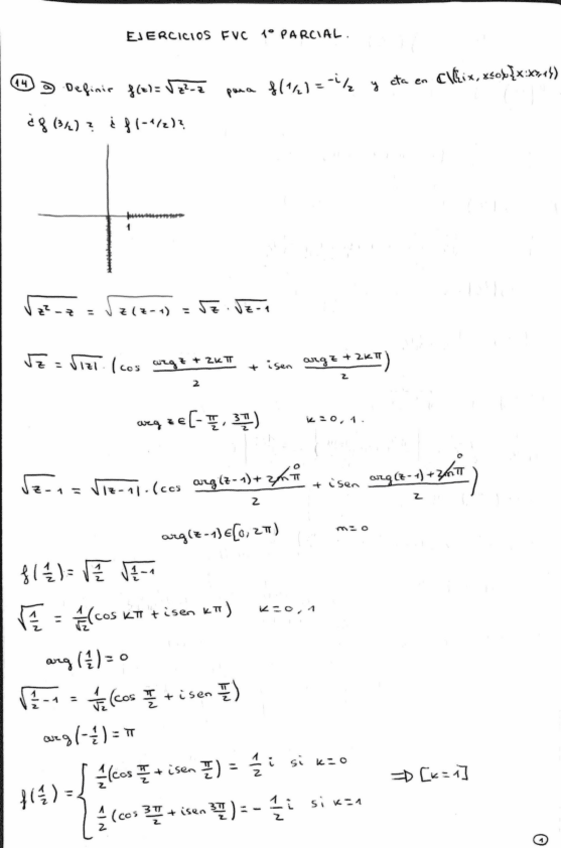 EJERCICIOS FVC 1º PARCIAL.
14 a) Definir f(z)=√(z²-z) para f(1/2)=-i/2 y cta en ℂ\({ix, x≤0}∪{x: x≥1})
¿f(3/2)? ¿f(-1/2)?
1
√(z²-z) = √(z(z-1)) = √z · √(z-1)
√z = √|z| · (cos (arg z + 2kπ)/2 + i sen (arg z + 2kπ)/2)
arg z ∈ [-π/2, 3π/2) k=0,1.
√(z-1) = √|z-1| · (cos (arg(z-1) + 2mπ)/2 + i sen (arg(z-1) + 2mπ)/2)
arg(z-1) ∈ [0, 2π) m=0
f(1/2) = √(1/2) √(1/2-1)
√(1/2) = 1/√2 (cos kπ + i sen kπ) k=0,1
arg(1/2) = 0
√(1/2-1) = 1/√2 (cos π/2 + i sen π/2)
arg(-1/2) = π
f(1/2) = { 1/2 (cos π/2 + i sen π/2) = 1/2 i si k=0
1/2 (cos 3π/2 + i sen 3π/2) = -1/2 i si k=1 ⇒ [k=1]
1